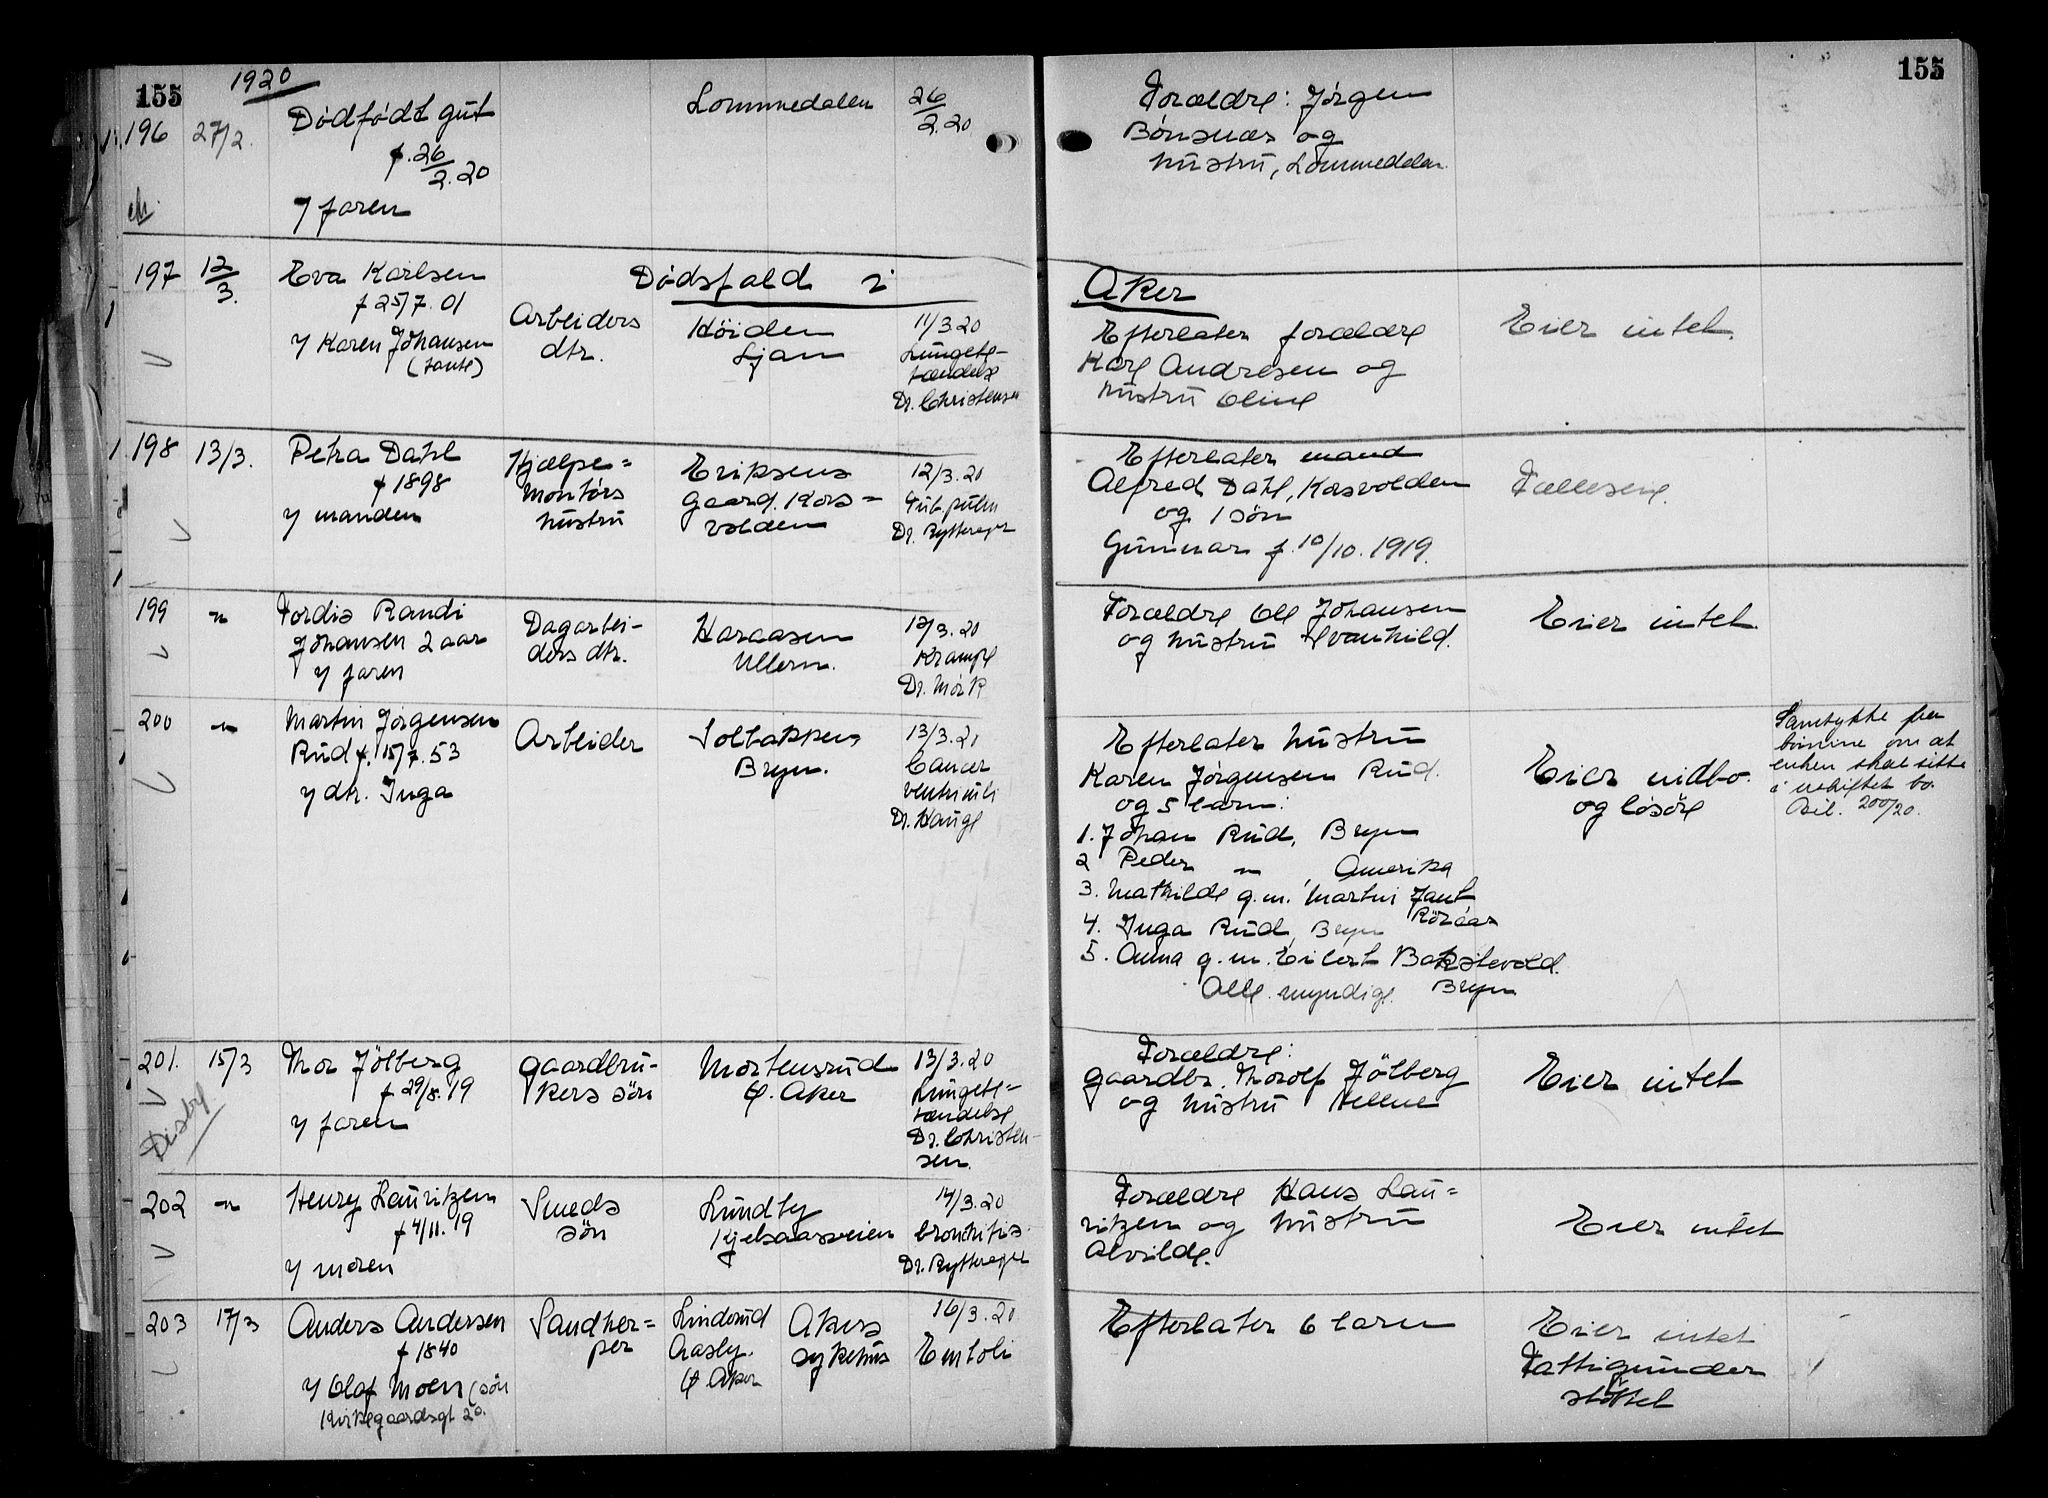 155
1920
155
196 27/2. Dødfødt gut Lommedalen 26/2.20 Forældre: Jørgen
f. 26/2.20 Bönsnæs og
hustru, Lommedalen
ɣ faren
197 12/3. Eva Karlsen Dødsfald i Aker
f 25/7.01 Arbeiders Höiden 11/3.20 Efterlater forældre Eier intet.
ɣ Karen Johansen dtr. Ljan Lungebe- Karl Andresen og
(tante) tændelse hustru Oline
Dr. Christensen
198 13/3. Petra Dahl Hjælpe= Eriksens 12/3.20 Efterlater mand
f 1898 montörs gaard. Kors= Tub. pulm Alfred Dahl, Korsvolden Fælleseie.
ɣ manden hustru volden Dr. Rytterager og 1 sön
Gunnar f. 10/10.1919.
199 -"- Tordis Randi Dagarbei- Haraasen 12/3.20 Forældre Ole Johansen Eier intet
Johansen 2 aar ders dtr. Ullern. Krampe og hustru Svanhild.
ɣ faren Dr. Mörk
200 -"- Martin Jörgensen Arbeider Solbakken 13/3.20 Efterlater hustru Samtykke fra
Rud f. 15/7.53 Bryn. Cancer Karen Jörgensen Rud. Eier indbo barnine om at
ɣ dtr. Inga ventriculi og 5 barn: og lösöre enken skal sitte
Dr. Hauge 1. Johan Rud, Bryn i uskiftet bo.
Bil. 200/20.
2 Peder -"- , Amerika
3. Mathilde g.m. Martin
Röraas
4. Inga Rud, Bryn
5. Anna g.m. Eilert
Alle myndige. Bryn
201. 15/3 Thor Jölberg gaardbru- Mortensrud 13/3.20 Forældre:
f 29/8.19 kers sön Ö. Aker Lungebe= gaardbr. Thorolf Jölberg Eier intet
ɣ faren tændelse og hustru Hellene
Dr. Christen-
sen.
Disby.
202 -"- Henry Lauritzen Smeds Lundby 14/3.20 Forældre Hans Lau=
f 4/11.19 sön Kjelsaasveien bronkitis. ritzen og hustru Eier intet
ɣ moren Dr. Rytterager Alvilde.
203 17/3 Anders Andersen Sandhar= Linderud Akers 16/3.20 Efterlater 6 barn Eier intet
f 1840 per Aasby. sykehus Emboli Fattigunder
ɣ Olaf Moen (sön Ö Aker stöttet
Kirkegaardsgt 20.